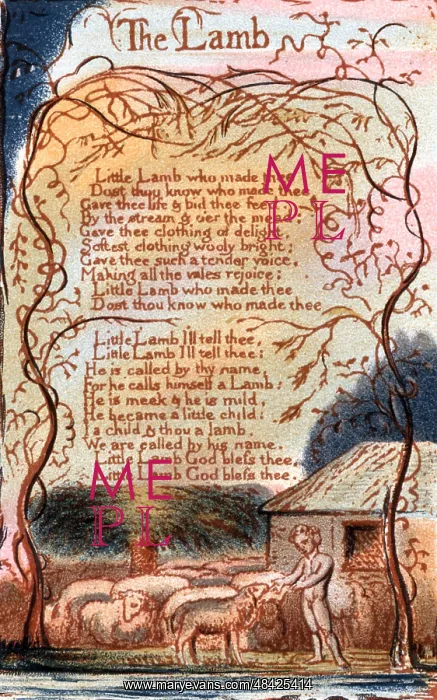 The Lamb
Little Lamb who made thee
Dost thou know who made thee
Gave thee life & bid thee feed
By the stream & o'er the mead
Gave thee clothing of delight,
Softest clothing wooly bright;
Gave thee such a tender voice,
Making all the vales rejoice;
Little Lamb who made thee
Dost thou know who made thee
Little Lamb I'll tell thee,
Little Lamb I'll tell thee;
He is called by thy name,
For he calls himself a Lamb:
He is meek & he is mild,
He became a little child:
I a child & thou a lamb,
We are called by his name.
Little Lamb God bleſs thee,
Little Lamb God bleſs thee.
ME
PL
ME
PL
www.maryevans.com/48425414